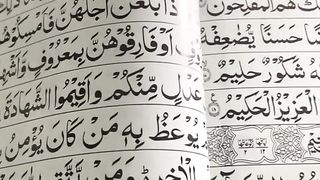 هُمُ الْمُفْلِحُوْنَ
حَسَنًا يُّضٰعِفْهُ
شَكُوْرٌ حَلِيْمٌ
الْعَزِيْزُ الْحَكِيْمُ ۝١٨
بَلَغْنَ اَجَلَهُنَّ فَاَمْسِكُوْ
اَوْ فَارِقُوْهُنَّ بِمَعْرُوْفٍ وَّاَشْهِ
عَدْلٍ مِّنْكُمْ وَاَقِيْمُوا الشَّهَادَةَ
يُوْعَظُ بِهٖ مَنْ كَانَ يُؤْمِنُ
الْاٰخِرِ وَمَنْ يَّتَّقِ